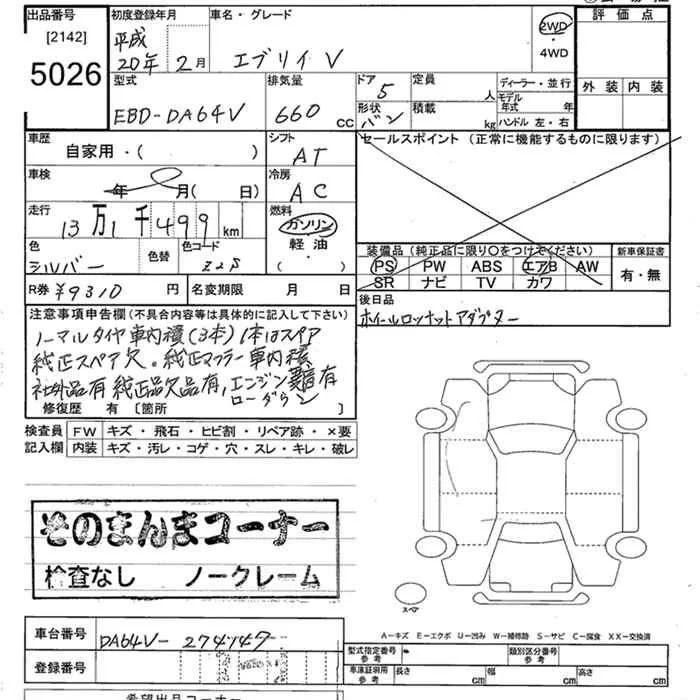 出品番号 初度登録年月 車名・グレード 評価点
[2142] 平成 2WD
5026 20年 2月 エブリイ V ・4WD
型式 排気量 ドア 5 定員 人 ディーラー・並行 外装 内装
モデル年式 年
EBD-DA64V 660 cc 形状 バン 積載 kg ハンドル 左・右
車歴 シフト セールスポイント (正常に機能するものに限ります)
自家用・( ) AT
車検 冷房
年 月( 日) AC
走行 燃料
13万1千499 km ガソリン
軽油
色 色替 色コード ・
シルバー Z2S ( )
装備品 (純正品に限り〇をつけてください) 新車保証書
PS PW ABS エアB AW 有・無
SR ナビ TV カワ
R券 ¥9310 円 名変期限 月 日
後日品
ホイールロックナットアダプター
注意事項申告欄 (不具合内容等は具体的に記入して下さい)
ノーマルタイヤ車内積(3本) 1本はスペア
純正スペア欠。純正マフラー車内積
社外品有 純正品欠品有, エンジン異音有
ローダウン
修復歴 有 〔箇所 〕
検査員 FW キズ・飛石・ヒビ割・リペア跡・×要
記入欄 内装 キズ・汚レ・コゲ・穴・スレ・キレ・破レ
そのまんまコーナー
検査なし ノークレーム
スペア
A-キズ E-エクボ U-凹み W-補修跡 S-サビ C-腐食 XX-交換済
車台番号 DA64V-274147
型式指定番号 参考 類別区分番号 参考
登録番号
車庫証明用 参考 長さ cm 幅 cm 高さ cm
希望出品コーナー